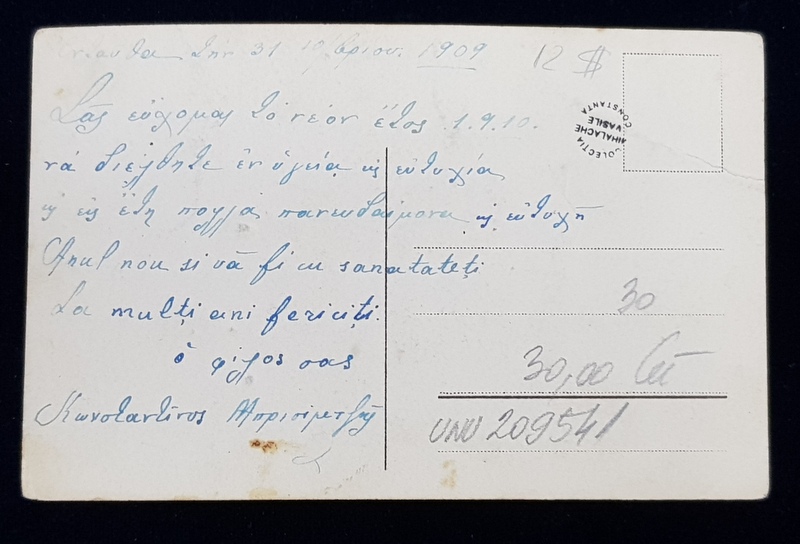 την 31 10/βριου. 1909
12 $
Σᾶς εὔχομαι τὸ νέον ἔτος 1.9.10.
νά διέλθητε ἐν ὑγείᾳ κ εὐτυχίᾳ
κ εἰς ἔτη πολλά πανευδαίμονα κ εὐτυχῆ
Anul nou si vă fi cu sanatateți
La mulți ani fericiți.
ὁ φίλος σας
Κωνσταντῖνος
COLECTIA
MIHALACHE
VASILE
CONSTANTA
30
30,00 Lei
UNU 209541